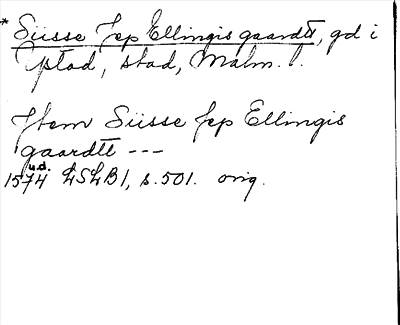 * Süsse Jep Ellingis gaardtt, gd i
ptad, stad, Malm. l.
Jtem Süsse Jep Ellingis
gaardtt ---
u.d.
1574 LSLB1, s. 501. orig.